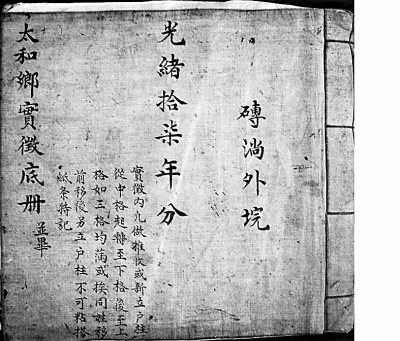 磚淌外垸
光緒拾柒年分
實徵內凢做推收或新立户柱
從中格起轉至下格後至上
格如三格均蒲或挨同姓移
前移後另立户柱不可粘搭
紙条特記
太和鄉實徵底册
並畢